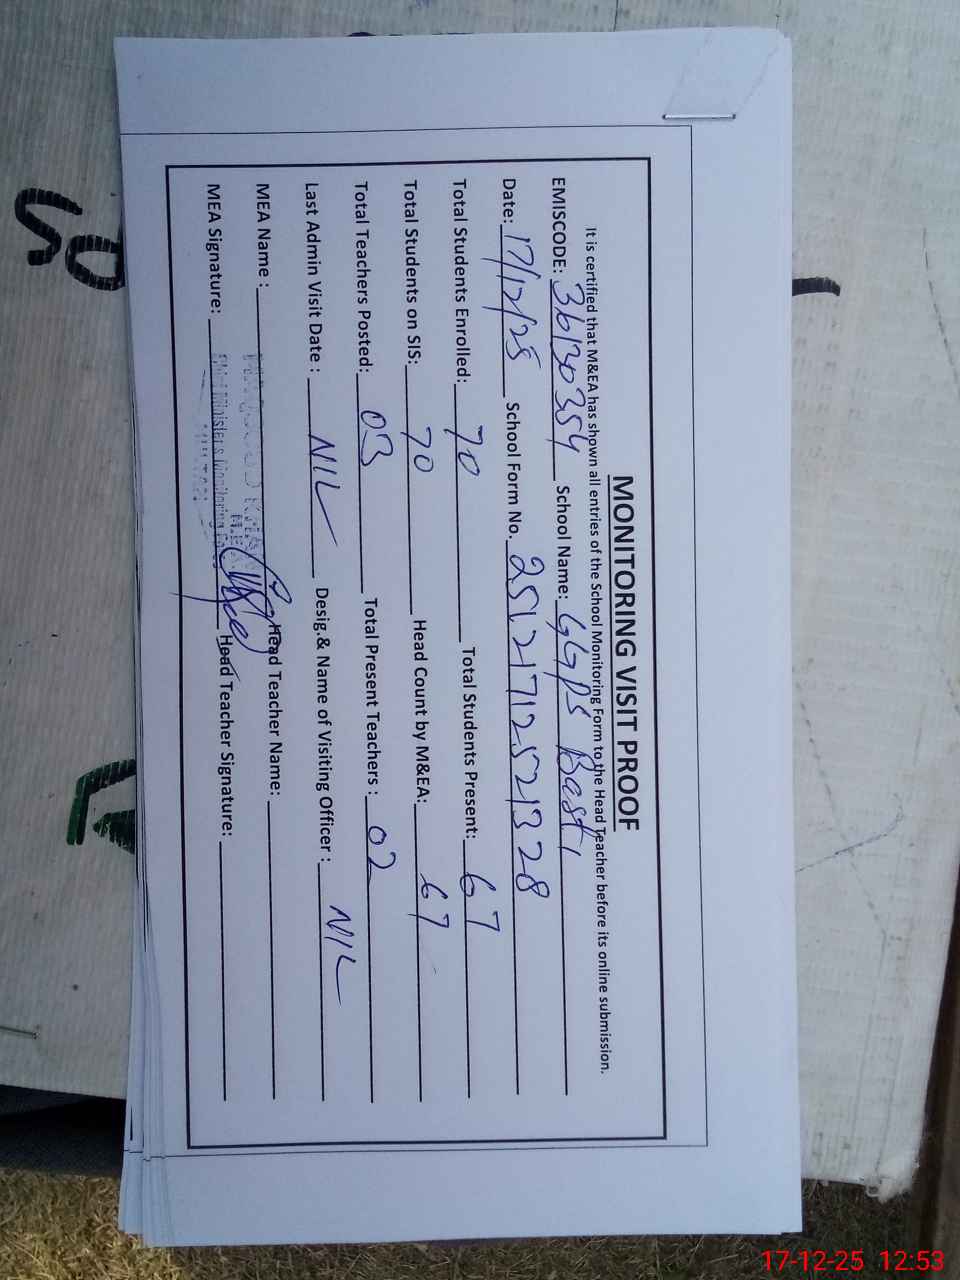 MONITORING VISIT PROOF
It is certified that M&EA has shown all entries of the School Monitoring Form to the Head Teacher before its online submission.
EMISCODE: 36130354 School Name: GGPS Basti
Date: 17/12/25 School Form No. 25121712521328
Total Students Enrolled: 70 Total Students Present: 67
Total Students on SIS: 70 Head Count by M&EA: 67
Total Teachers Posted: 03 Total Present Teachers : 02
Last Admin Visit Date : NIL Desig.& Name of Visiting Officer : NIL
MEA Name : Head Teacher Name:
MEA Signature: Head Teacher Signature:
Chief Minister's Monitoring
MULTAN
17-12-25 12:53